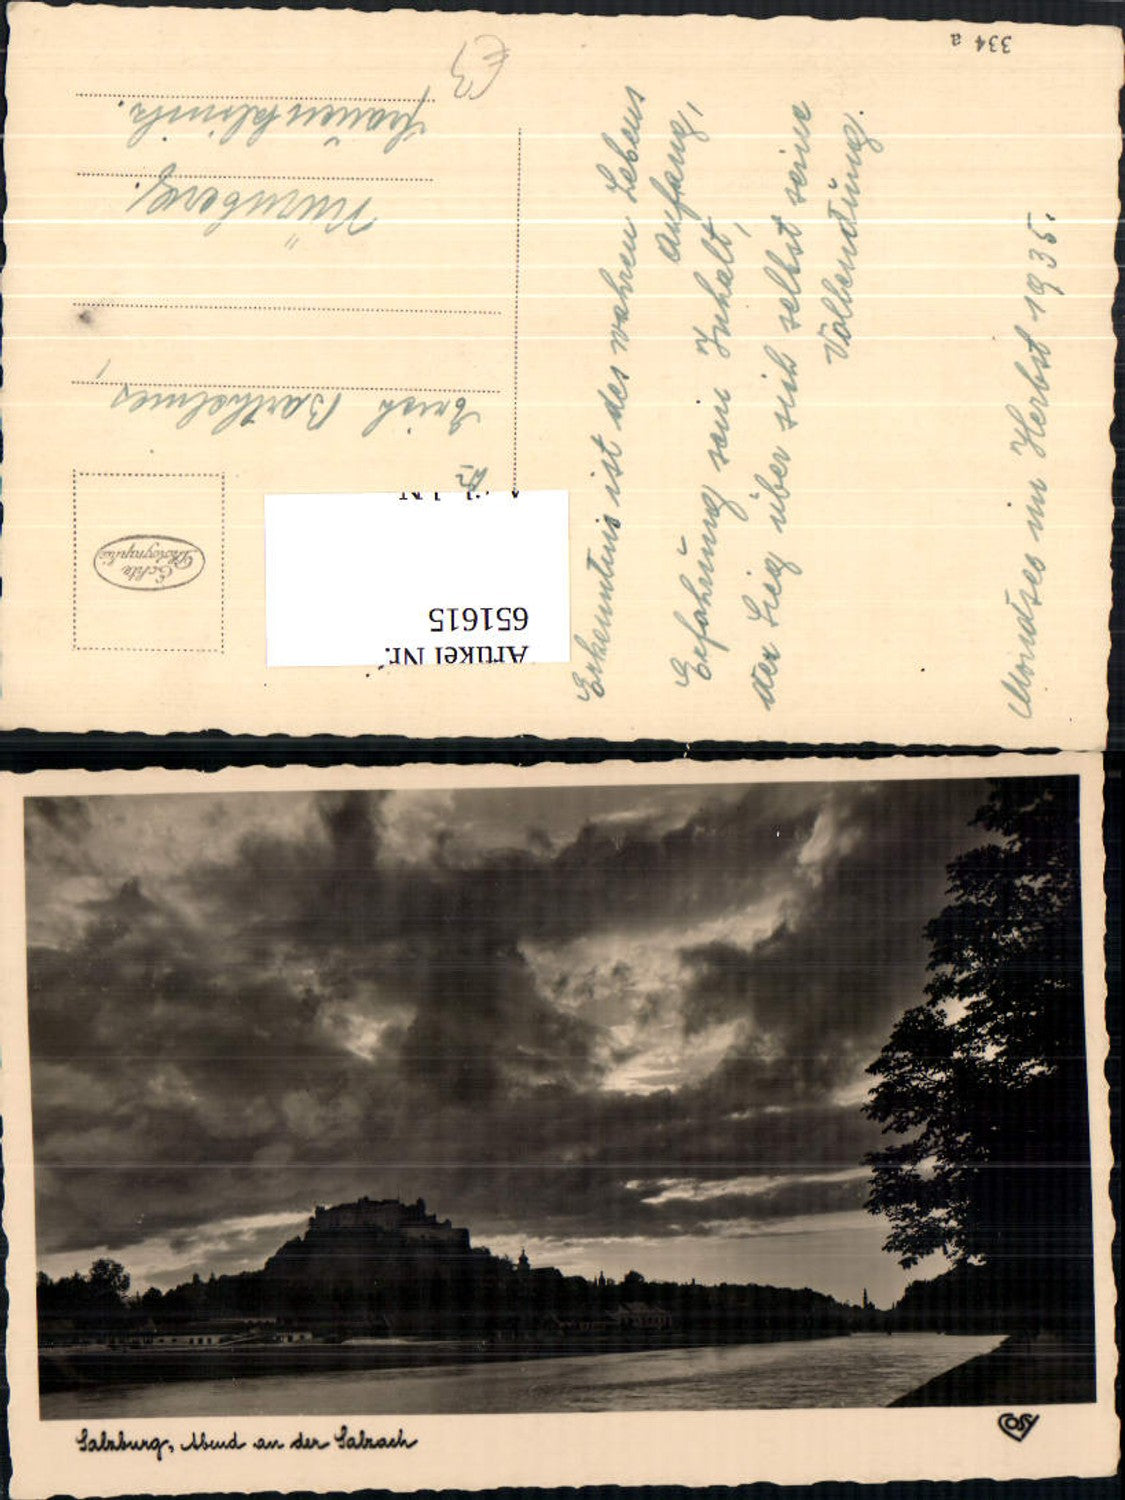 334 a
Erkenntnis ist des wahren Lebens
Anfang,
Erfahrung sein Inhalt,
der Sieg über sich selbst seine
Vollendung.
Mondsee im Herbst 1935.
Erich Barthelmes,
Nürnberg.
€3
Echte
Photographie
Artikel Nr.
651615
Salzburg, Abend an der Salzach
COSY